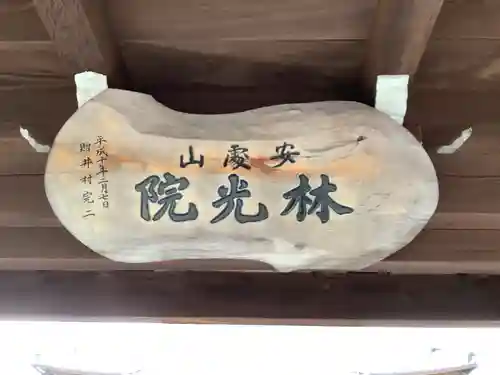 安處山
林光院
平成十年二月七日
照井村完二